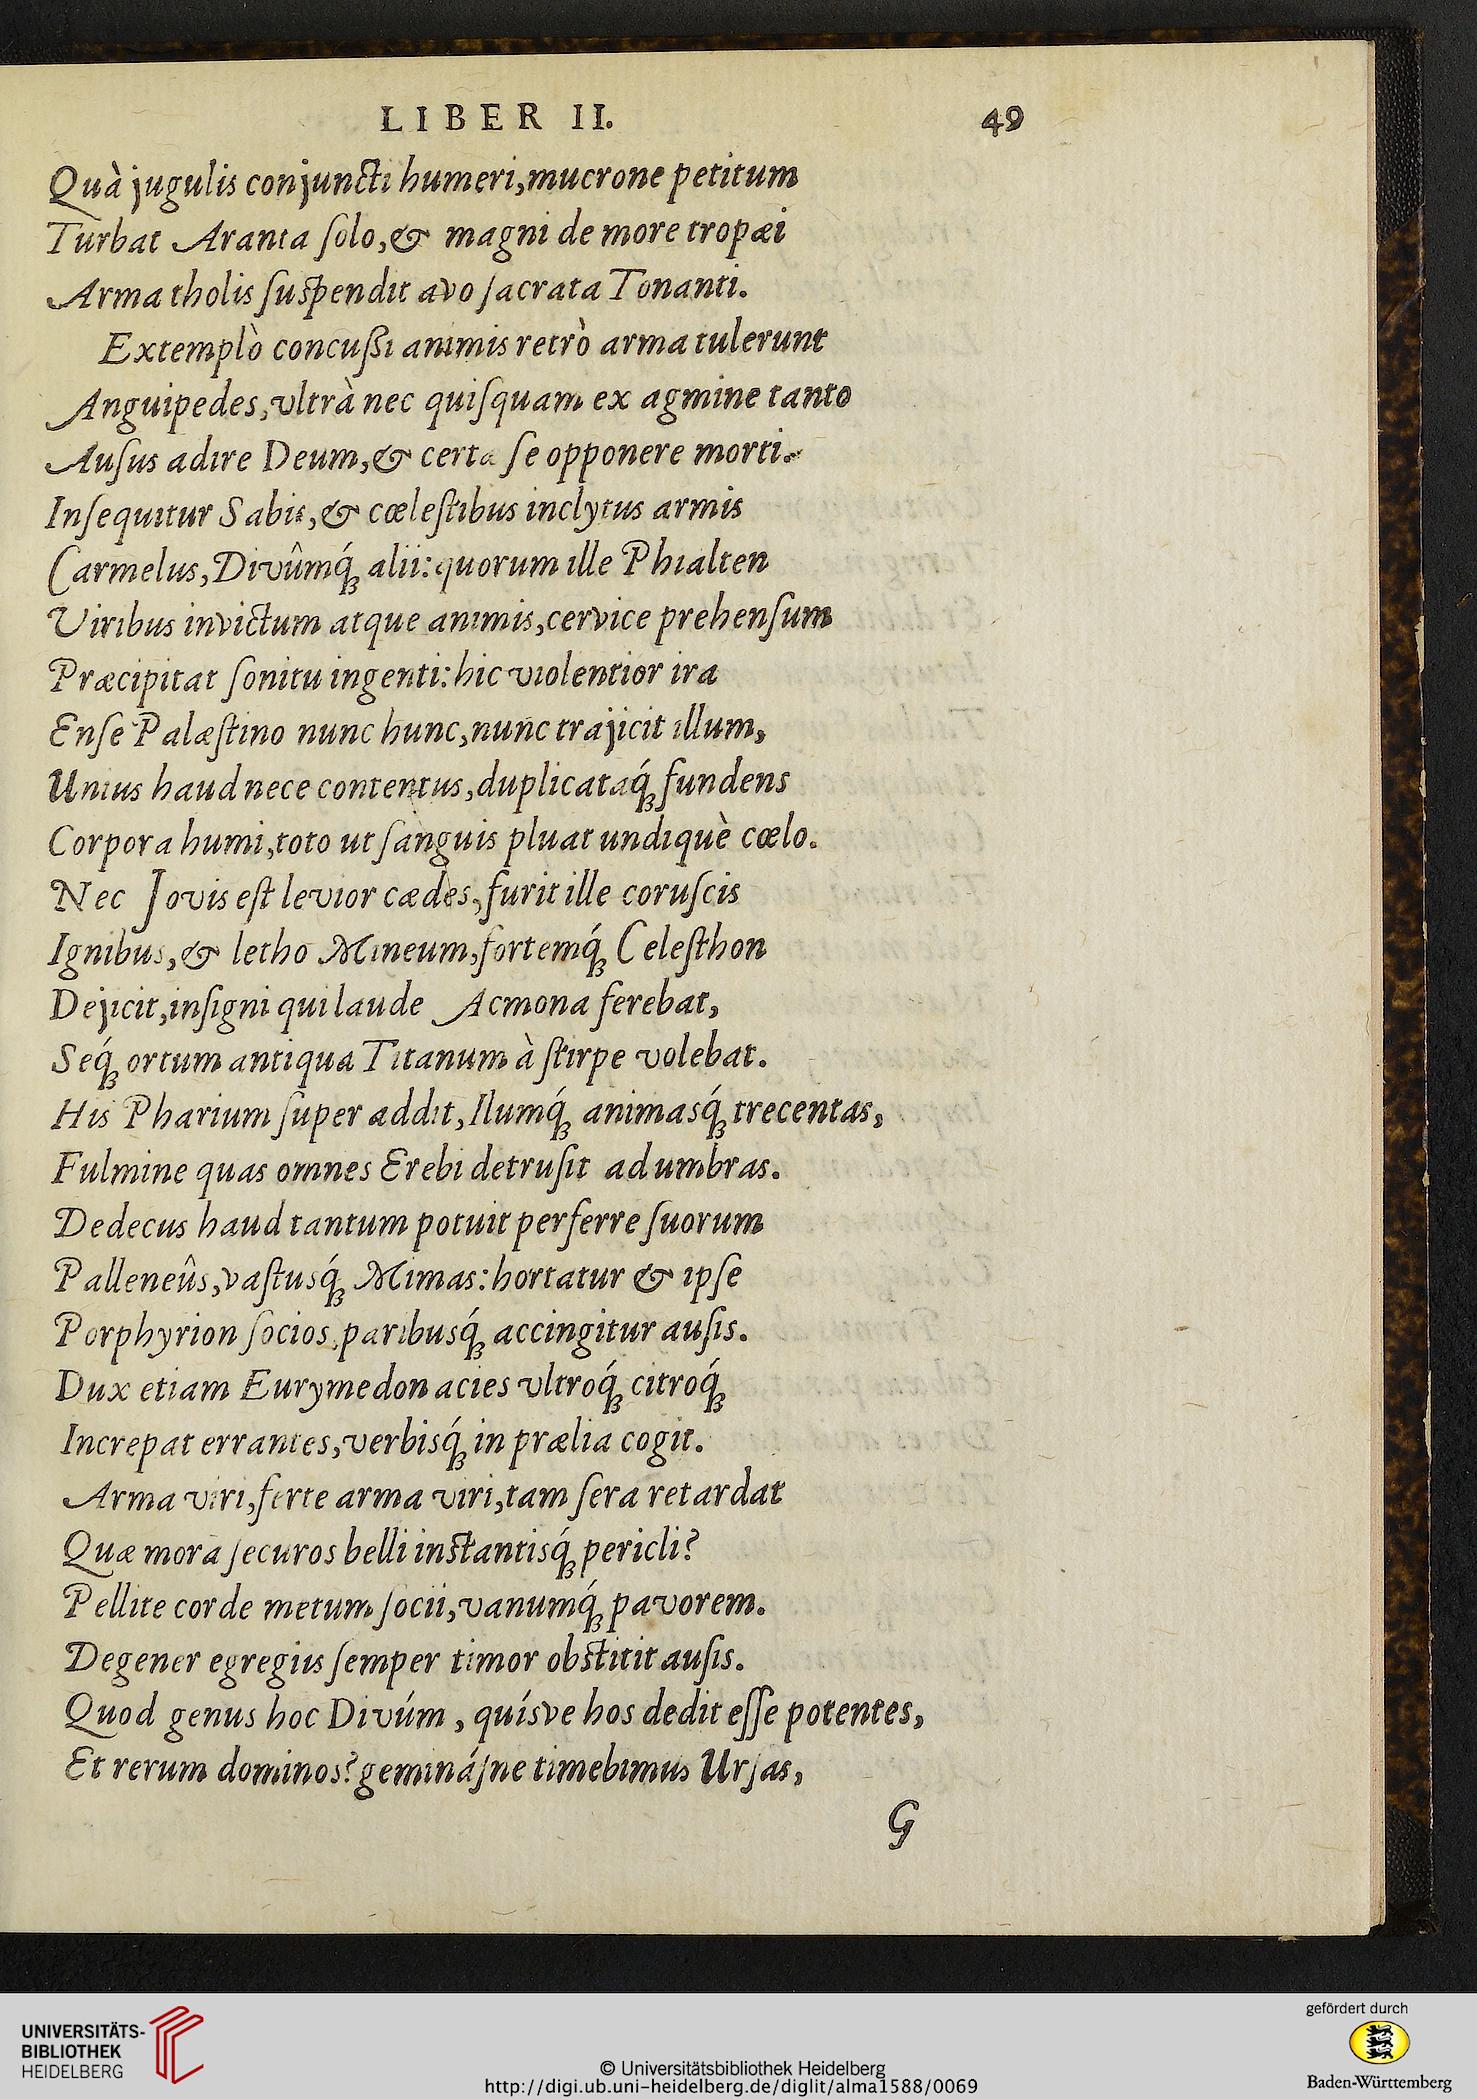 LIBER II. 49
Quà jugulis conjuncti humeri, mucrone petitum
Turbat Aranta ſolo, & magni de more tropæi
Arma tholis ſuſpendit avo ſacrata Tonanti.
Extemplò concußi animis retrò arma tulerunt
Anguipedes, ultrà nec quiſquam ex agmine tanto
Auſus adire Deum, & certa ſe opponere morti.
Inſequitur Sabis, & cœleſtibus inclytus armis
Carmelus, Divûmq́; alii: quorum ille Phialten
Viribus invictum atque animis, cervice prehenſum
Præcipitat ſonitu ingenti: hic violentior ira
Enſe Palæſtino nunc hunc, nunc trajicit illum,
Unius haud nece contentus, duplicataq́; fundens
Corpora humi, toto ut ſanguis pluat undiquè cœlo.
Nec Jovis eſt levior cædes, furit ille coruſcis
Ignibus, & letho Mineum, fortemq́; Celeſthon
Dejicit, inſigni qui laude Acmona ferebat,
Seq́; ortum antiqua Titanum à ſtirpe volebat.
His Pharium ſuper addit, Ilumq́; animasq́; trecentas,
Fulmine quas omnes Erebi detruſit ad umbras.
Dedecus haud tantum potuit perferre ſuorum
Palleneûs, vaſtusq́; Mimas: hortatur & ipſe
Porphyrion ſocios, paribusq́; accingitur auſis.
Dux etiam Eurymedon acies ultroq́; citroq́;
Increpat errantes, verbisq́; in prælia cogit.
Arma viri, ferte arma viri, tam ſera retardat
Quæ mora ſecuros belli inſtantisq́; pericli?
Pellite corde metum ſocii, vanumq́; pavorem.
Degener egregiis ſemper timor obſtitit auſis.
Quod genus hoc Divúm, quísve hos dedit eſſe potentes,
Et rerum dominos? geminásne timebimus Urſas,
G
UNIVERSITÄTS-
BIBLIOTHEK
HEIDELBERG
© Universitätsbibliothek Heidelberg
http://digi.ub.uni-heidelberg.de/diglit/alma1588/0069
gefördert durch
Baden-Württemberg